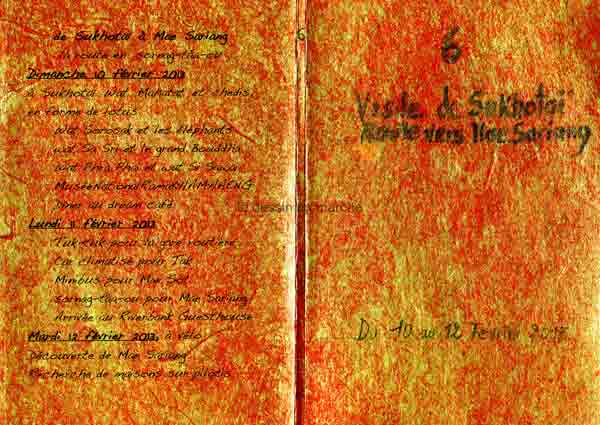 de Sukhotai à Mae Sariang
la route en sornag-tàa-ou
Dimanche 10 février 2013
à Sukhotai Wat Mahatat et chedis
en forme de lotus
Wat Sorosak et les éléphants
Wat Sa Sri et le grand Bouddha
Wat Phra Phai et Wat Si Sawai
Musée National
Dîner au dream café
Lundi 11 février 2013
Tuk-tuk pour la gare routière
Car climatisé pour Tak
Minibus pour Mae Sot
Sornag-tàa-ou pour Mae Sariang
Arrivée au Riverbank Guesthouse
Mardi 12 février 2013, à vélo
Découverte de Mae Sariang
Recherche de maisons sur pilotis
6
6
Visite de Sukhotaï
Route vers Mae Sariang
© dessin et marche
Du 10 au 12 Février 2013